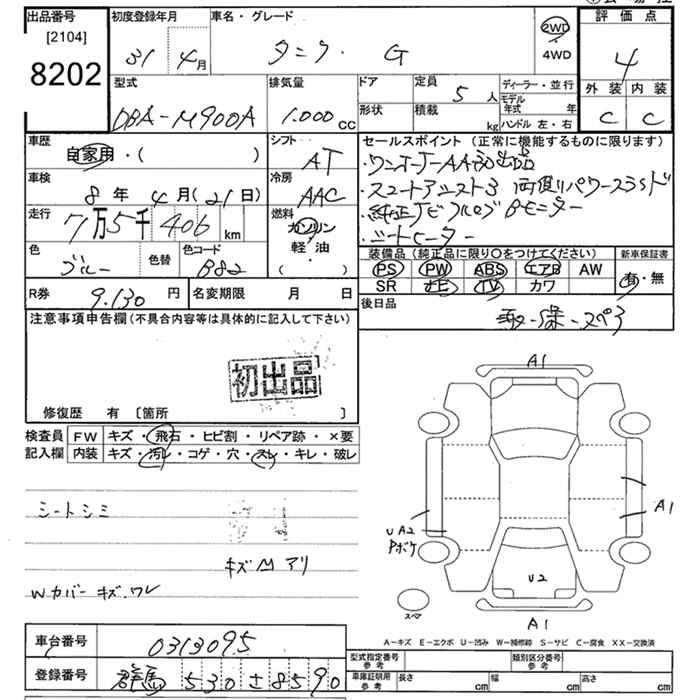 出品番号
[2104]
8202
初度登録年月
31 4月
車名・グレード
タンク・ G
2WD
4WD
評価点
4
外装 内装
C C
型式
DBA-M900A
排気量
1.000 CC
ドア
形状
定員
5 人
積載
kg
ディーラー・並行
モデル年式 年
ハンドル 左・右
車歴
自家用・( )
シフト
AT
車検
8年 4月(21日)
冷房
AAC
走行
7万5千406km
燃料
ガソリン
軽・油
( )
色
ブルー
色替
色コード
B82
セールスポイント (正常に機能するものに限ります)
・ワンオーナーAA初出品
・スマートアシスト3 両側パワースライド
・純正ナビフルセグBモニター
・シートヒーター
装備品 (純正品に限り〇をつけてください)
PS PW ABS エアB AW
SR ナビ TV カワ
新車保証書
有・無
R券
9.130 円
名変期限 月 日
後日品
取・保・スペ3
注意事項申告欄 (不具合内容等は具体的に記入して下さい)
初出品
修復歴 有 〔箇所 〕
検査員
記入欄
FW キズ・飛石・ヒビ割・リペア跡・×要
内装 キズ・汚レ・コゲ・穴・スレ・キレ・破レ
シートシミ
キズM アリ
Wカバー キズ、ワレ
A1
A1
UA2
Pボケ
U2
スペア
A1
A-キズ E-エクボ U-凹み W-補修跡 S-サビ C-腐食 XX-交換済
車台番号
0313095
登録番号
群馬 530 さ 8590
型式指定番号
参考
類別区分番号
参考
車庫証明用
参考
長さ cm
幅 cm
高さ cm